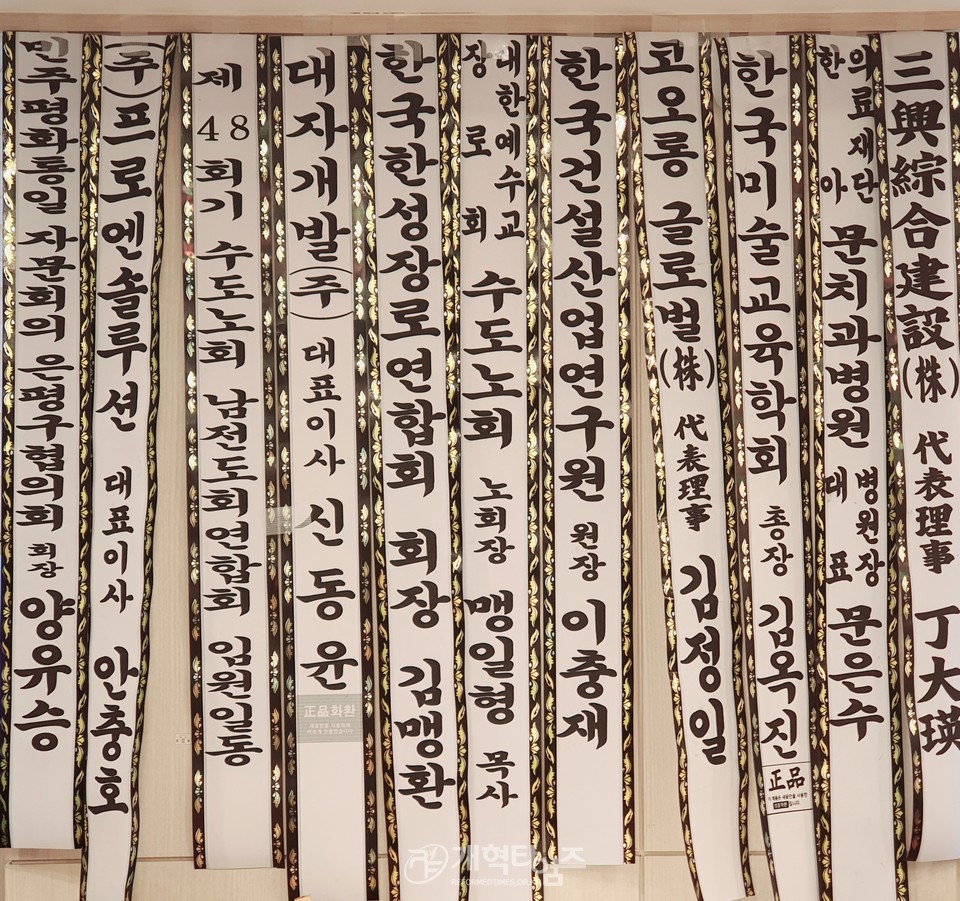 민주평화통일 자문회의 은평구협의회 회장 양유승
(주)프로엔솔루션 대표이사 안충호
제48회기 수도노회 남전도회연합회 임원일동
대자개발(주) 대표이사 신동윤
正品화환
한국한성장로연합회 회장 김맹환
대한예수교
장로회
수도노회 노회장 맹일형 목사
한국건설산업연구원 원장 이충재
코오롱 글로벌(株) 代表理事 김정일
한국미술교육학회 총장 김옥진
正品
의료재단
한아
문치과병원
병원장
대표
문은수
三興綜合建設(株) 代表理事 丁大瑛
개혁타임즈
REFORMEDTIMES.OR